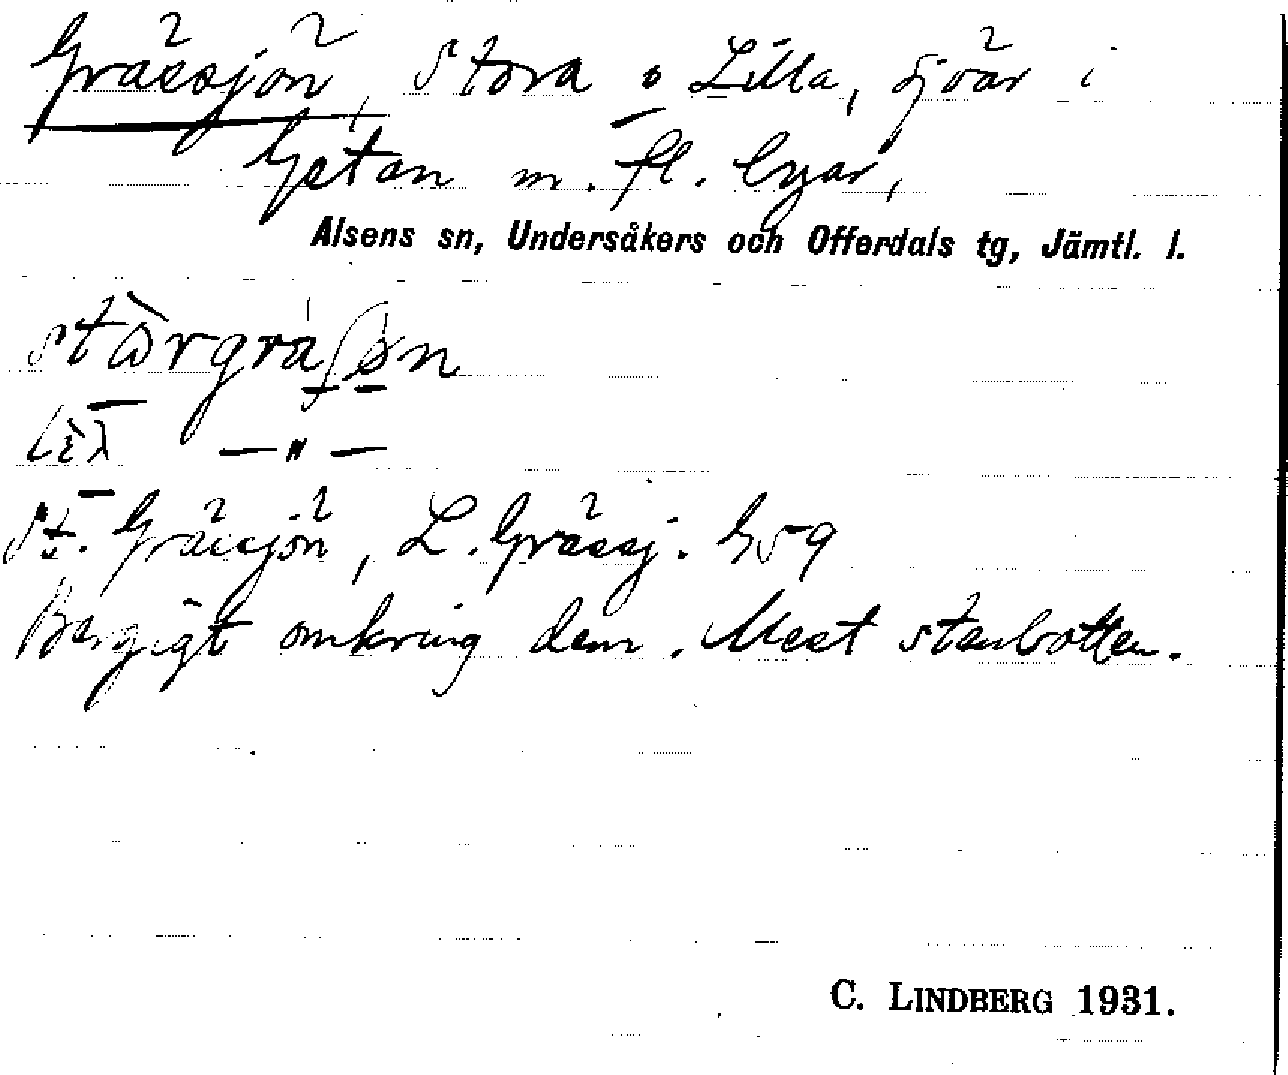 Grässjön, Stora o Lilla, sjöar i
Getan m. fl. byar,
Alsens sn, Undersåkers och Offerdals tg, Jämtl. l.
— " —
St. Grässjön, L. Grässj. G59
Bergigt omkring dem. Mest stenbotten.
C. LINDBERG 1931.